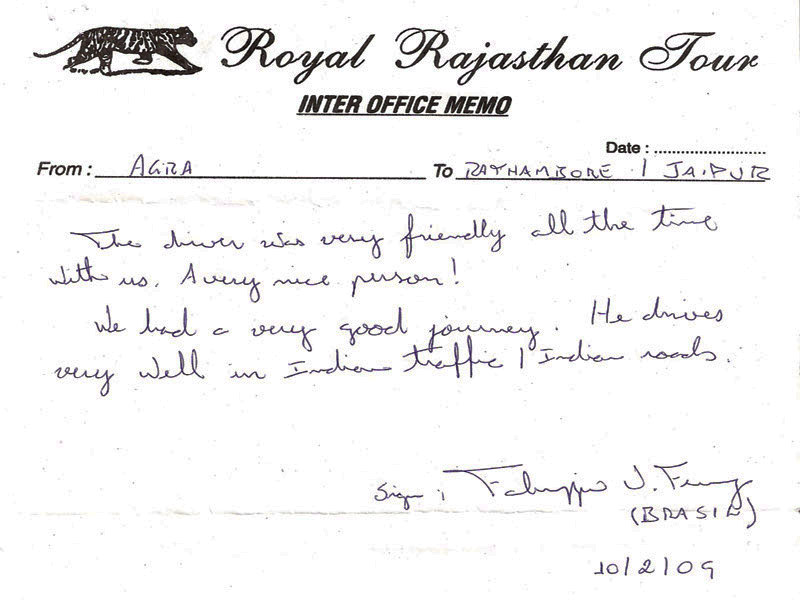 Royal Rajasthan Tour
INTER OFFICE MEMO
Date : ............................
From : AGRA To RATHAMBORE / JAIPUR
The driver was very friendly all the time
with us. A very nice person!
We had a very good journey. He drives
very well in Indian traffic / Indian roads.
Sign :
(BRASIL)
10/2/09